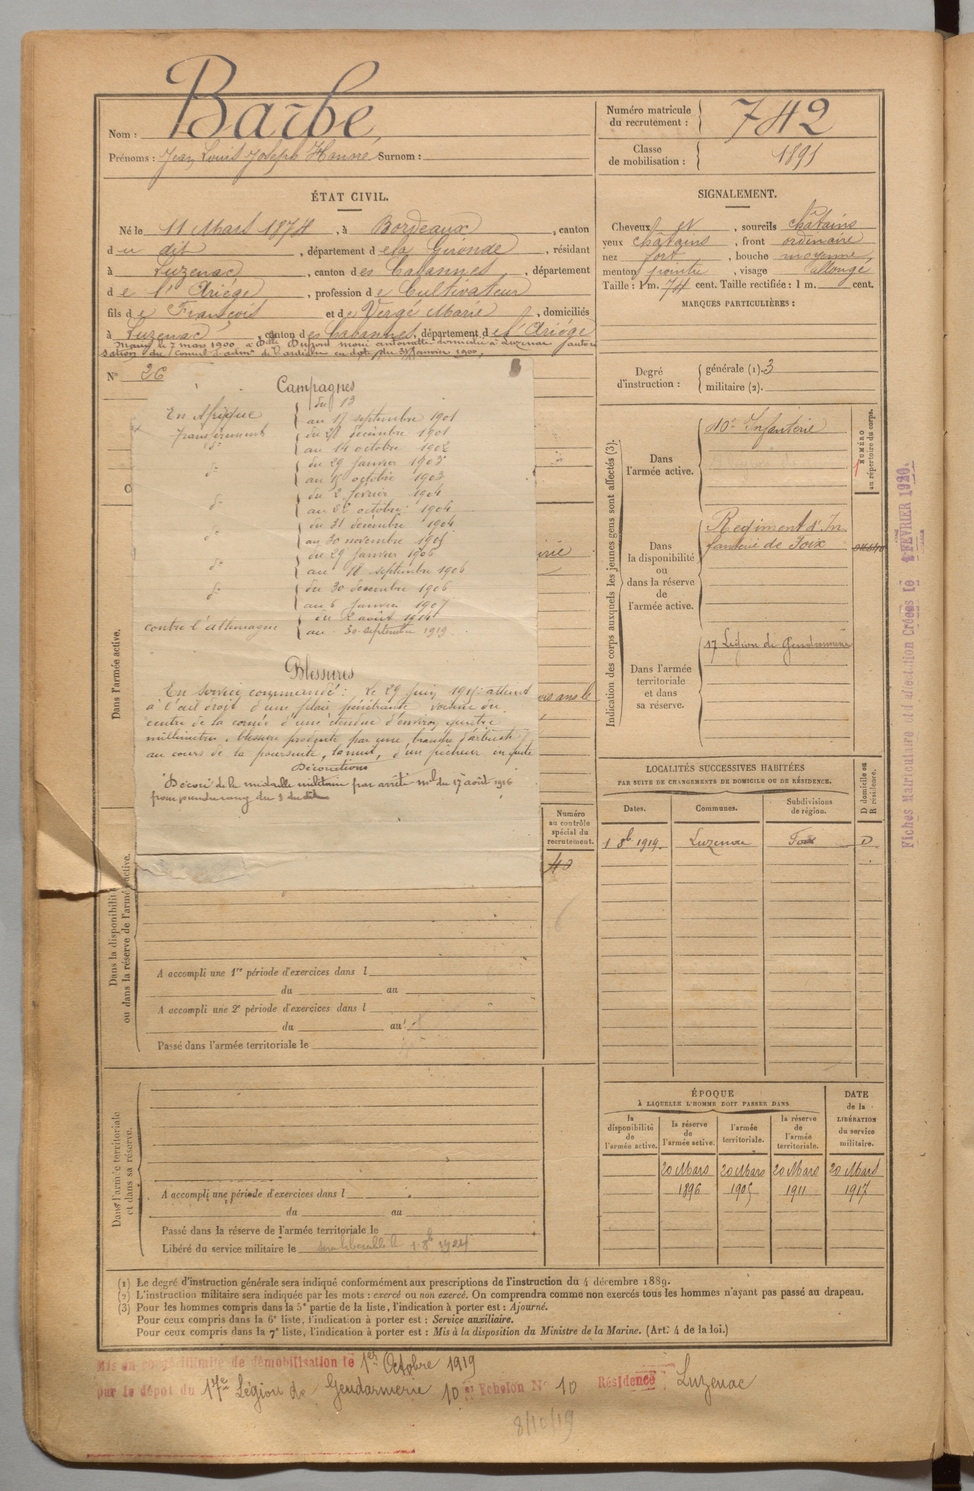 Nom : Barbé
Prénoms : Jean Louis Joseph Honoré Surnom :
Numéro matricule du recrutement : 742
Classe de mobilisation : 1895
ÉTAT CIVIL.
Né le 11 Mars 1874, à Bordeaux, canton
du dit, département de la Gironde, résidant
à Luzenac, canton des Cabannes, département
de l'Ariège, profession de Cultivateur
fils de François et de Verge Marie, domiciliés
à Luzenac, canton des Cabannes, département de l'Ariège
Marié le 7 mars 1900 à Dlle Dupont antoinette domiciliée à Luzenac
du 31 janvier 1900
SIGNALEMENT.
Cheveux et, sourcils châtains
yeux châtains, front ordinaire
nez fort, bouche moyenne,
menton pointu, visage allongé
Taille : 1 m. 74 cent. Taille rectifiée : 1 m. cent.
MARQUES PARTICULIÈRES :
Degré d'instruction : générale (1). 3
militaire (2).
N° 26
Campagnes
En Afrique du 13
au 17 septembre 1901
transfèrement du 28 décembre 1901
do au 14 octobre 1902
do du 29 janvier 1903
au 19 octobre 1903
do du 2 février 1904
au 22 octobre 1904
do du 31 décembre 1904
au 30 novembre 1905
do du 29 janvier 1906
au 18 septembre 1906
do du 30 décembre 1906
au 6 janvier 1907
contre l'allemagne du 2 août 1914
au 30 septembre 1919
Blessures
En service commandé : le 29 juin 1915 : atteint
à l'œil droit d'une plaie pénétrante voisine du
centre de la cornée d'une étendue d'environ quatre
millimètres, blessure produite par une branche d'arbuste
au cours de la poursuite, la nuit, d'un pêcheur en fuite
Décorations
Décoré de la médaille militaire par arrêté mel du 17 août 1916
pour prendre rang du 9 du dit
Indication des corps auxquels les jeunes gens sont affectés (3).
NUMÉRO au répertoire du corps.
Dans l'armée active.
10e Infanterie
Dans la disponibilité ou dans la réserve de l'armée active.
Régiment d'In
fanterie de Foix
Dans l'armée territoriale et dans sa réserve.
17 Légion de Gendarmerie
Fiches Matriculaire et d'affectation Créées le 4 FEVRIER 1920.
LOCALITÉS SUCCESSIVES HABITÉES
PAR SUITE DE CHANGEMENTS DE DOMICILE OU DE RÉSIDENCE.
D domicile ou R résidence.
Dates. Communes. Subdivisions de région.
1 8b 1919. Luzenac Foix D
Dans l'armée active.
Numéro au contrôle spécial du recrutement.
40
Dans la disponibilité ou dans la réserve de l'armée active.
A accompli une 1re période d'exercices dans l
du au
A accompli une 2e période d'exercices dans l
du au
Passé dans l'armée territoriale le
ÉPOQUE
À LAQUELLE L'HOMME DOIT PASSER DANS
la disponibilité de l'armée active. la réserve de l'armée active. l'armée territoriale. la réserve de l'armée territoriale.
DATE de la LIBÉRATION du service militaire.
20 Mars 20 Mars 20 Mars 20 Mars
1896 1905 1911 1917
Dans l'armée territoriale et dans sa réserve.
A accompli une période d'exercices dans l
du au
Passé dans la réserve de l'armée territoriale le
Libéré du service militaire le sera libérable le 1 8b 1924
(1) Le degré d'instruction générale sera indiqué conformément aux prescriptions de l'instruction du 4 décembre 1889.
(2) L'instruction militaire sera indiquée par les mots : exercé ou non exercé. On comprendra comme non exercés tous les hommes n'ayant pas passé au drapeau.
(3) Pour les hommes compris dans la 5e partie de la liste, l'indication à porter est : Ajourné.
Pour ceux compris dans la 6e liste, l'indication à porter est : Service auxiliaire.
Pour ceux compris dans la 7e liste, l'indication à porter est : Mis à la disposition du Ministre de la Marine. (Art. 4 de la loi.)
Mis en congé illimité de démobilisation le 1er Octobre 1919
par le dépôt du 17e Légion de Gendarmerie 10 Echelon N° 10 Résidence Luzenac
8/10/19